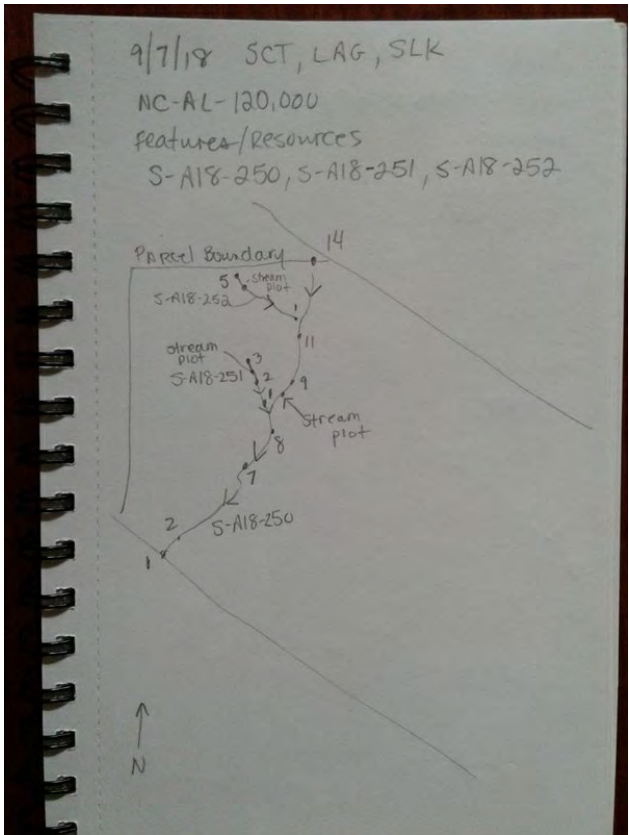 9/7/18 SCT, LAG, SLK
NC-AL-120,000
Features/Resources
S-A18-250, S-A18-251, S-A18-252
14
PARCEl Boundary
5
stream
plot
S-A18-252
1
11
stream
plot
3
S-A18-251
2
9
1
stream
plot
8
7
S-A18-250
2
1
N